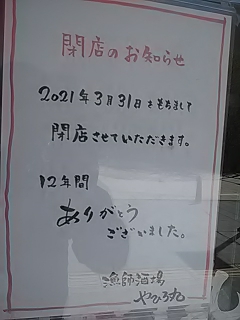 閉店のお知らせ
2021年3月31日をもちまして
閉店させていただきます。
12年間
ありがとう
ございました。
漁師酒場